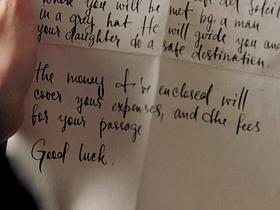 where you will be met by a man
in a grey hat. He will guide you and
your daughter do a safe destination.
the money I've enclosed will
cover your expenses, and the fees
for your passage
Good luck.